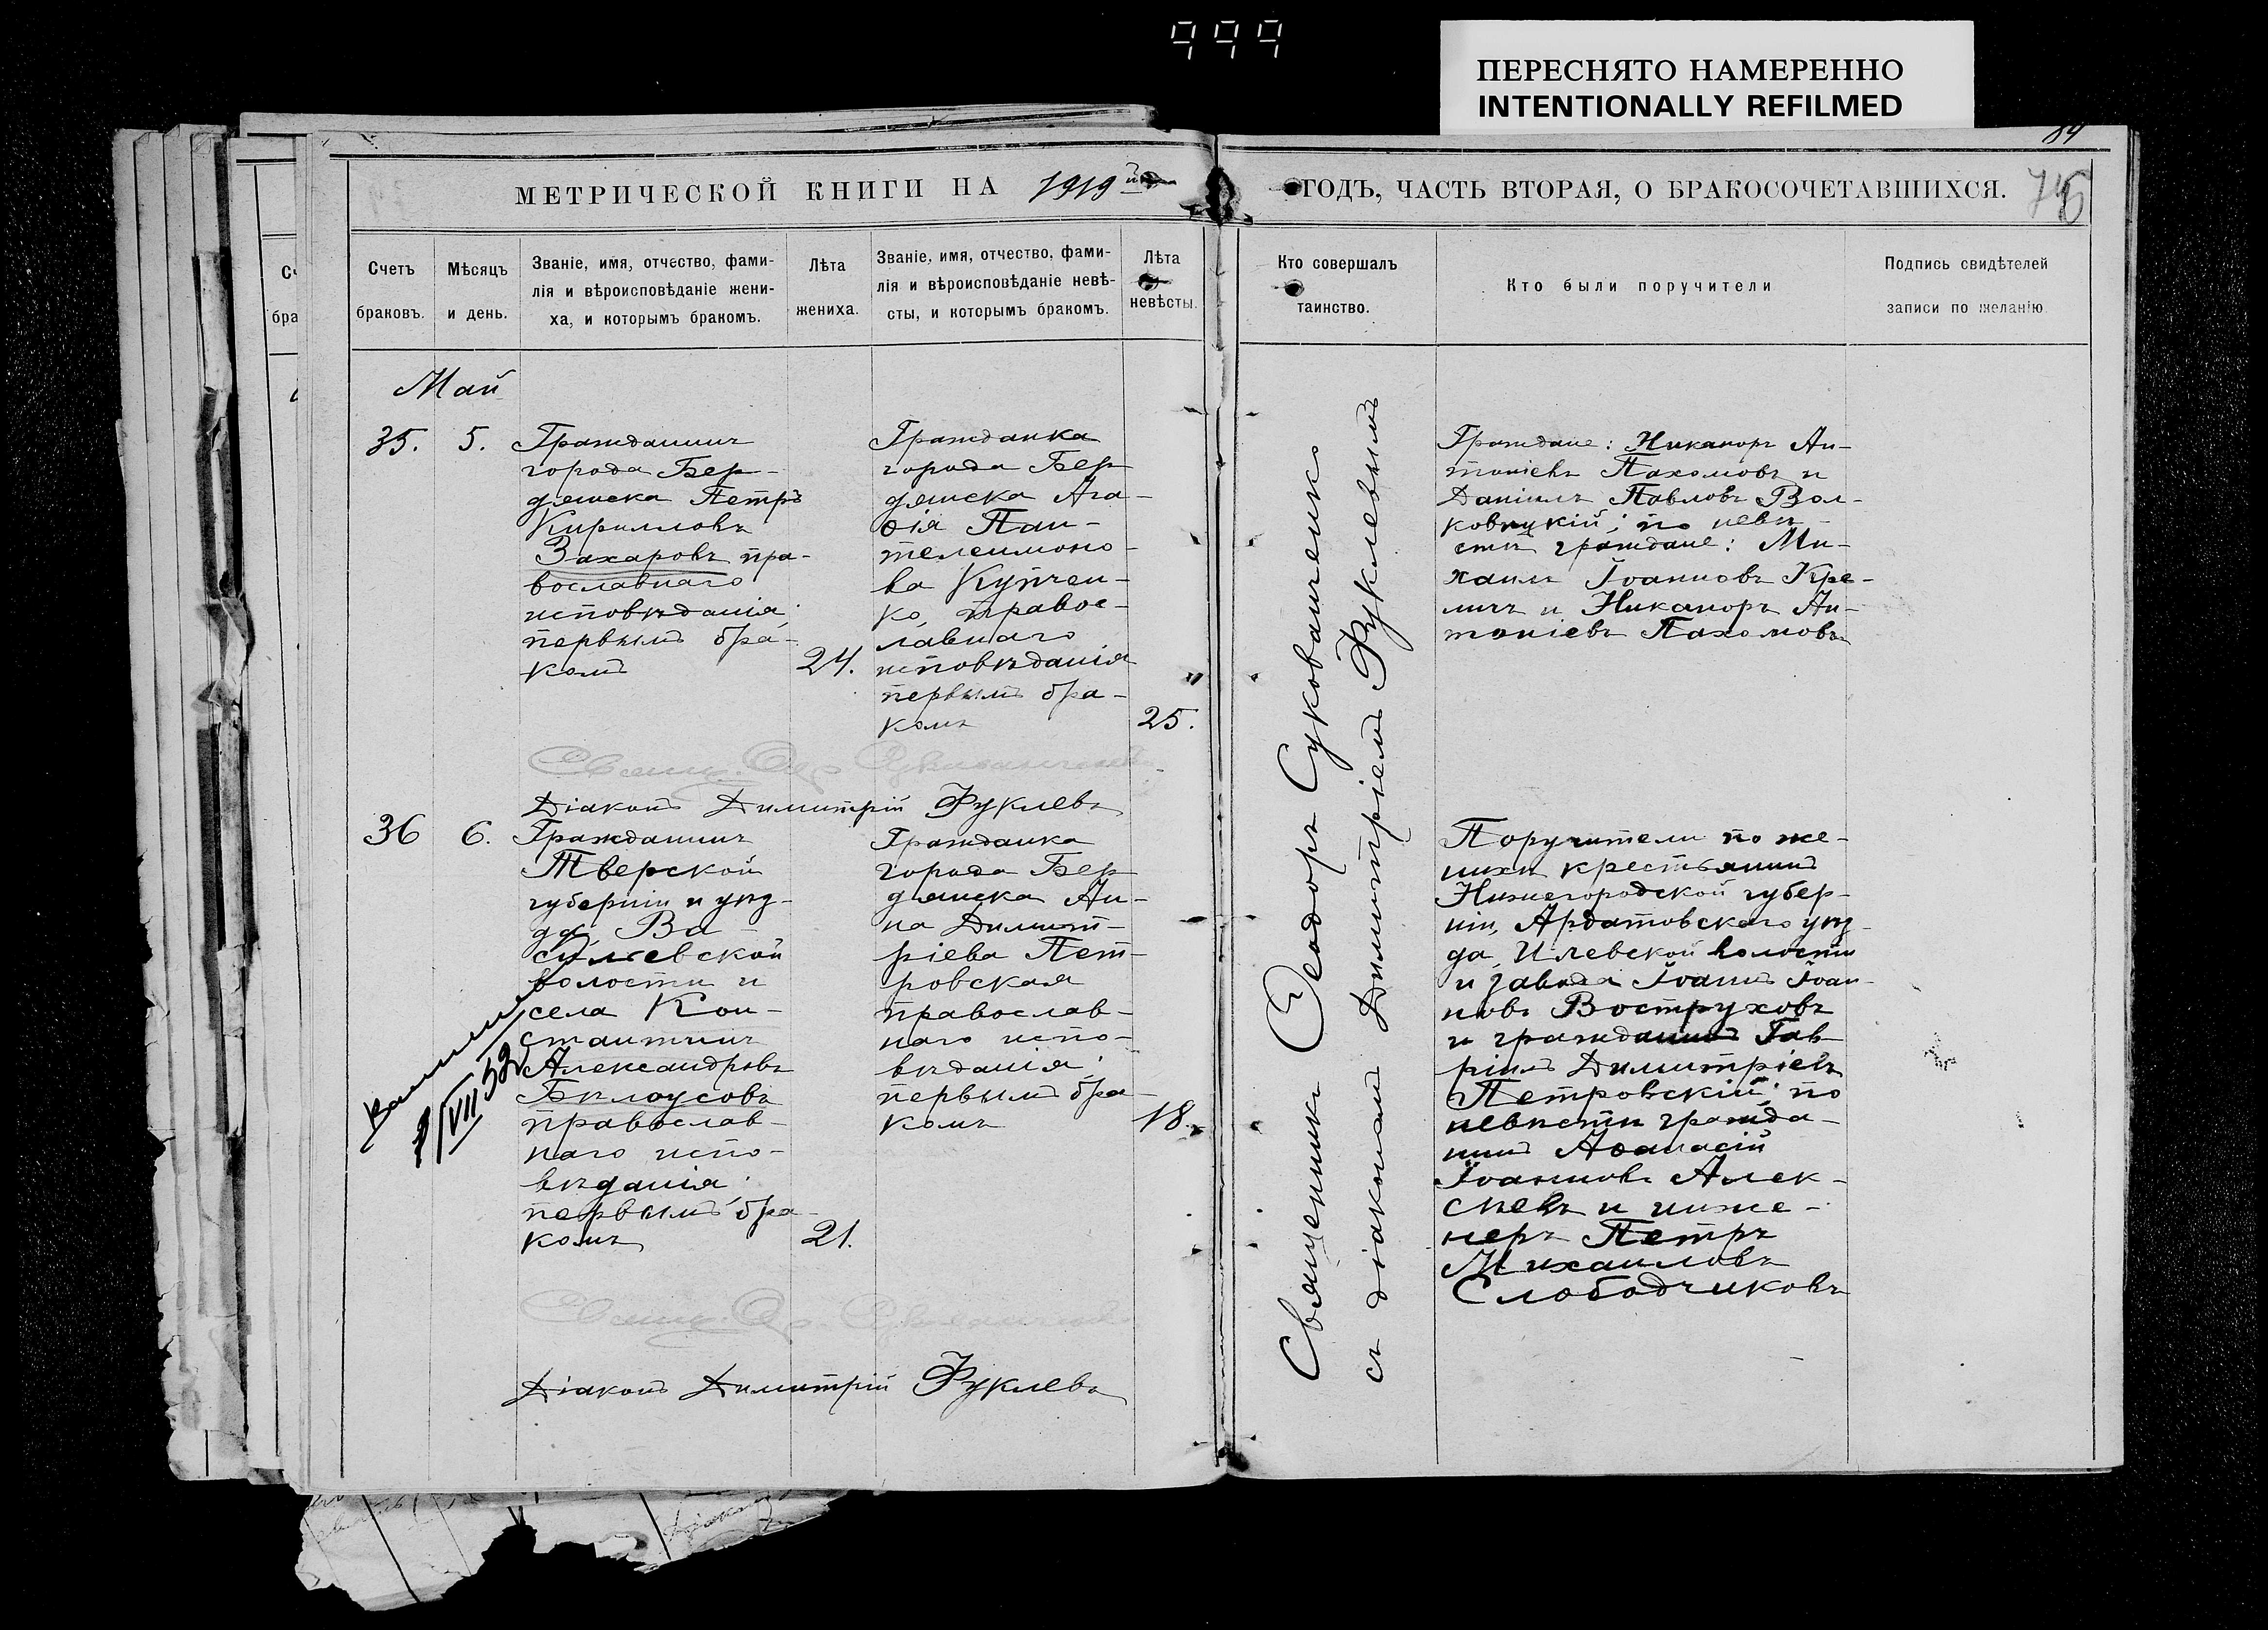 999
ПЕРЕСНЯТО НАМЕРЕННО
INTENTIONALLY REFILMED
84
МЕТРИЧЕСКОЙ КНИГИ НА 1919 й
ГОДЪ, ЧАСТЬ ВТОРАЯ, О БРАКОСОЧЕТАВШИХСЯ.
Счетъ
браковъ.
Мѣсяцъ
и день.
Званіе, имя, отчество, фами-
лія и вѣроисповѣданіе жени-
ха, и которымъ бракомъ.
Лѣта
жениха.
Званіе, имя, отчество, фами-
лія и вѣроисповѣданіе невѣ-
сты, и которымъ бракомъ.
Лѣта
невѣсты.
Кто совершалъ
таинство.
Кто были поручители
Подпись свидѣтелей
записи по желанію
Май
35.
5.
Гражданинъ
города Бер-
дянска Петръ
Кирилловъ
Захаровъ пра-
вославнаго
исповѣданія,
первымъ бра-
комъ
24.
Гражданка
города Бер-
дянска Ага-
ѳія Пан-
телеимоно-
ва Купчен-
ко, правос-
лавнаго
исповѣданія
первымъ бра-
комъ
25.
Священникъ Ѳеодоръ Сукованченко
съ діакономъ Димитріемъ Фуклевымъ
Граждане: Никаноръ Ан-
тоніевъ Пахомовъ и
Даніилъ Павловъ Вол-
ковицкій; по невѣ-
стѣ граждане: Ми-
хаилъ Іоанновъ Кре-
личъ и Никаноръ Ан-
тоніевъ Пахомовъ
Діаконъ Димитрій Фуклевъ
36
6.
Гражданинъ
Тверской
губерніи и уѣз-
да, Ва-
сильевской
волости и
села Кон-
стантинъ
Александровъ
Бѣлоусовъ
православ-
наго испо-
вѣданія,
первымъ бра-
комъ
21.
Гражданка
города Бер-
дянска Ан-
на Димит-
ріева Пет-
ровская
православ-
наго испо-
вѣданія,
первымъ бра-
комъ
18.
Поручители по же-
нихѣ крестьянинъ
Нижегородской губер-
ніи, Ардатовскаго уѣз-
да, Илевской волости
и завода Іоаннъ Іоан-
новъ Воструховъ
и гражданинъ Гав-
ріилъ Димитріевъ
Петровскій; по
невѣстѣ гражда-
нинъ Аѳанасій
Іоанновъ Алек-
сѣевъ и инже-
неръ Петръ
Михаиловъ
Слободчиковъ
VII 52
Діаконъ Димитрій Фуклевъ